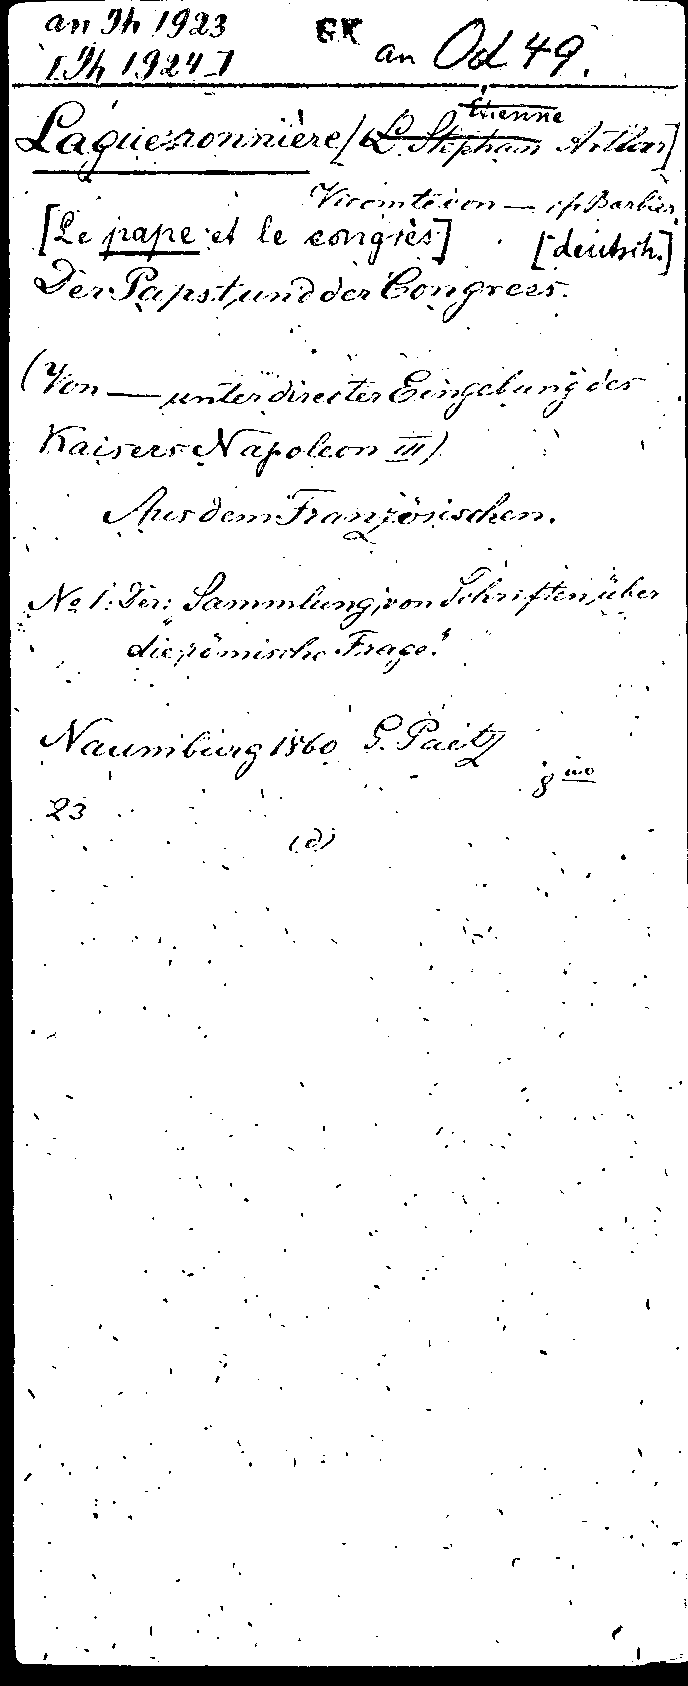 an Jh 1923
GK
an Od 49.
[Jh 1924]
Étienne
Lagueronnière [L. Stephan Arthur]
Vicomte von — cf. Barbier.
[Le pape et le congrès] [deutsch.]
Der Papst und der Congress.
(Von — unter directer Eingebung des
Kaisers Napoleon III)
Aus dem Französischen.
No 1. Der: „Sammlung von Schriften über
die römische Frage."
Naumburg 1860 G. Paetz
8vo
23
(d)